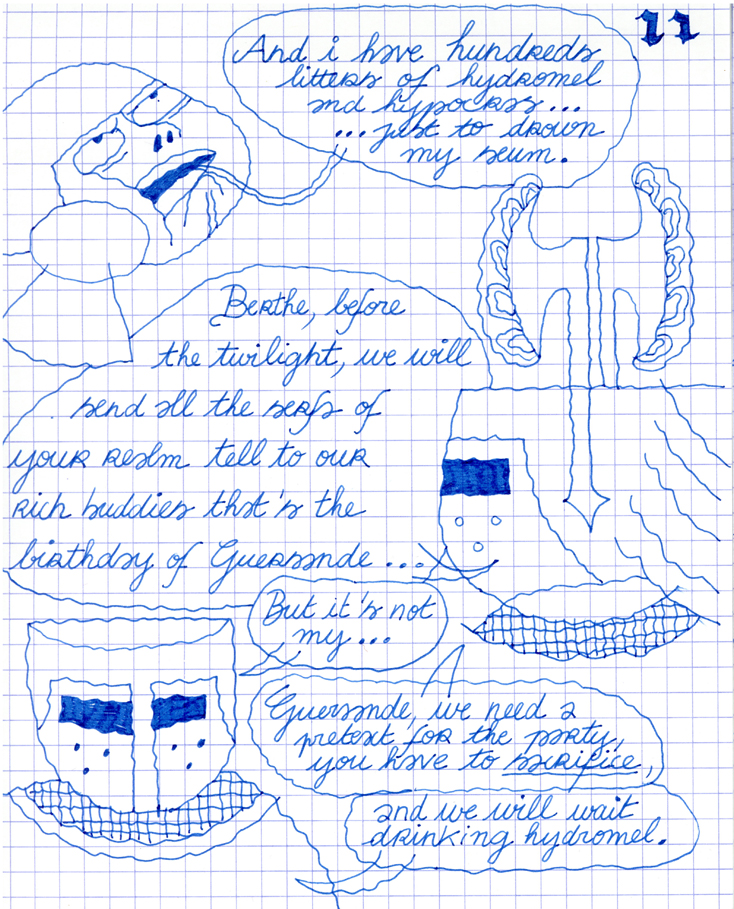 11
And i have hundreds
litters of hydromel
and hypocras...
...just to drown
my seum.
Berthe, before
the twilight, we will
send all the serfs of
your realm tell to our
rich buddies that's the
birthday of Guersande ...
But it's not
my...
Guersande, we need a
pretext for the party,
you have to sacrifice,
and we will wait
drinking hydromel.